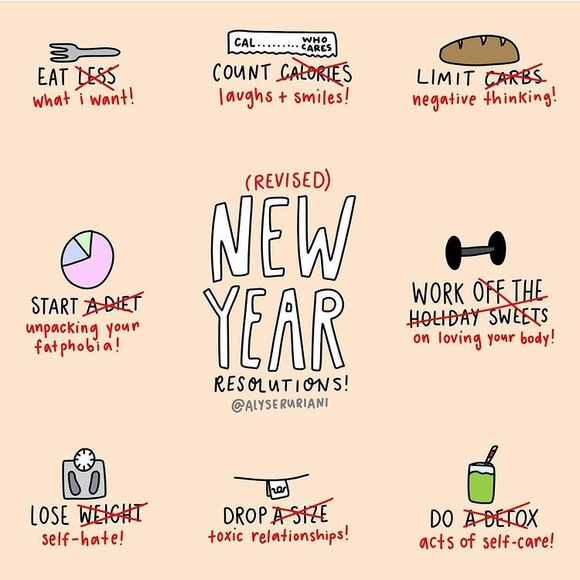 CAL.......... WHO CARES
EAT LESS
what i want!
COUNT CALORIES
laughs + smiles!
LIMIT CARBS
negative thinking!
(REVISED)
NEW
YEAR
RESOLUTIONS!
@ALYSERURIANI
START A DIET
unpacking your
fatphobia!
WORK OFF THE
HOLIDAY SWEETS
on loving your body!
LOSE WEIGHT
self-hate!
DROP A SIZE
toxic relationships!
DO A DETOX
acts of self-care!